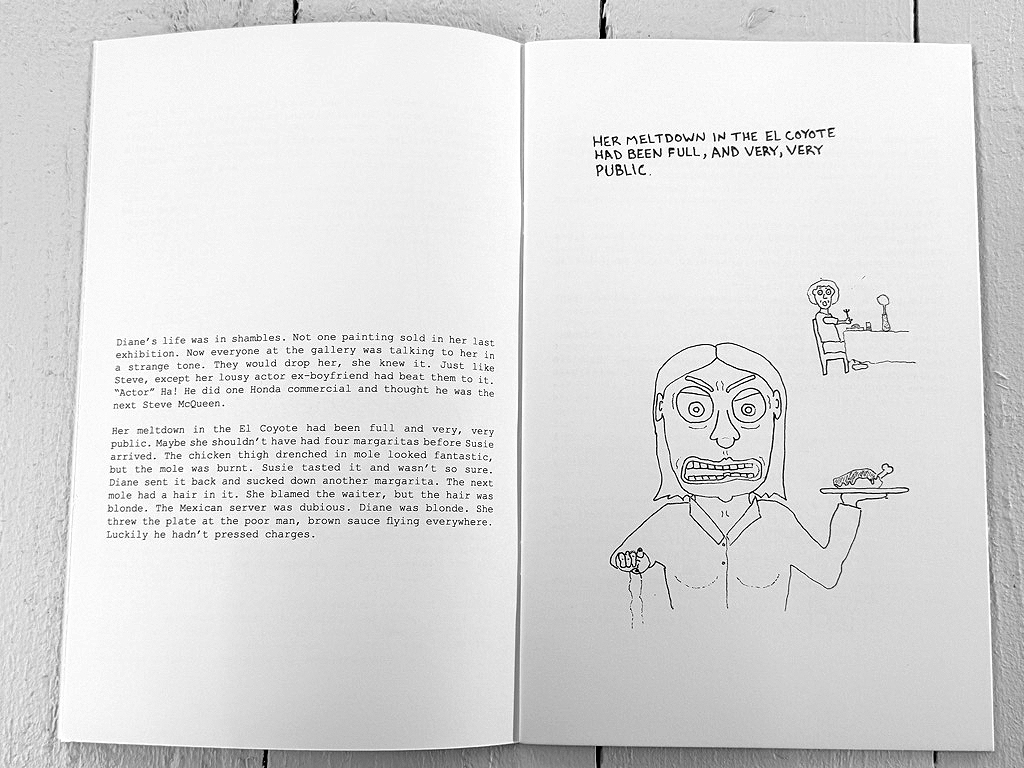 Diane's life was in shambles. Not one painting sold in her last
exhibition. Now everyone at the gallery was talking to her in
a strange tone. They would drop her, she knew it. Just like
Steve, except her lousy actor ex-boyfriend had beat them to it.
"Actor" Ha! He did one Honda commercial and thought he was the
next Steve McQueen.
Her meltdown in the El Coyote had been full and very, very
public. Maybe she shouldn't have had four margaritas before Susie
arrived. The chicken thigh drenched in mole looked fantastic,
but the mole was burnt. Susie tasted it and wasn't so sure.
Diane sent it back and sucked down another margarita. The next
mole had a hair in it. She blamed the waiter, but the hair was
blonde. The Mexican server was dubious. Diane was blonde. She
threw the plate at the poor man, brown sauce flying everywhere.
Luckily he hadn't pressed charges.
HER MELTDOWN IN THE EL COYOTE
HAD BEEN FULL, AND VERY, VERY
PUBLIC.